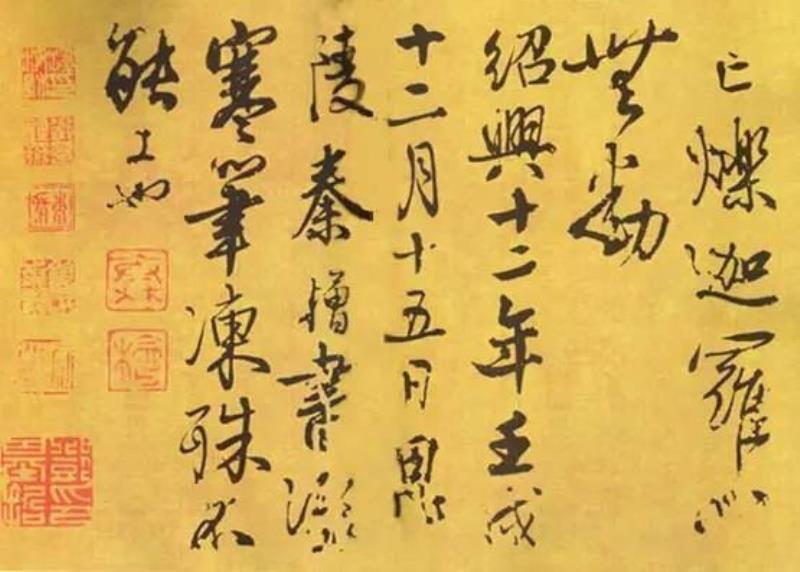 亡爍迦羅心
無動
紹興十二年壬戌
十二月十五日周
陵秦熺書
寒筆凍殊不
能工也